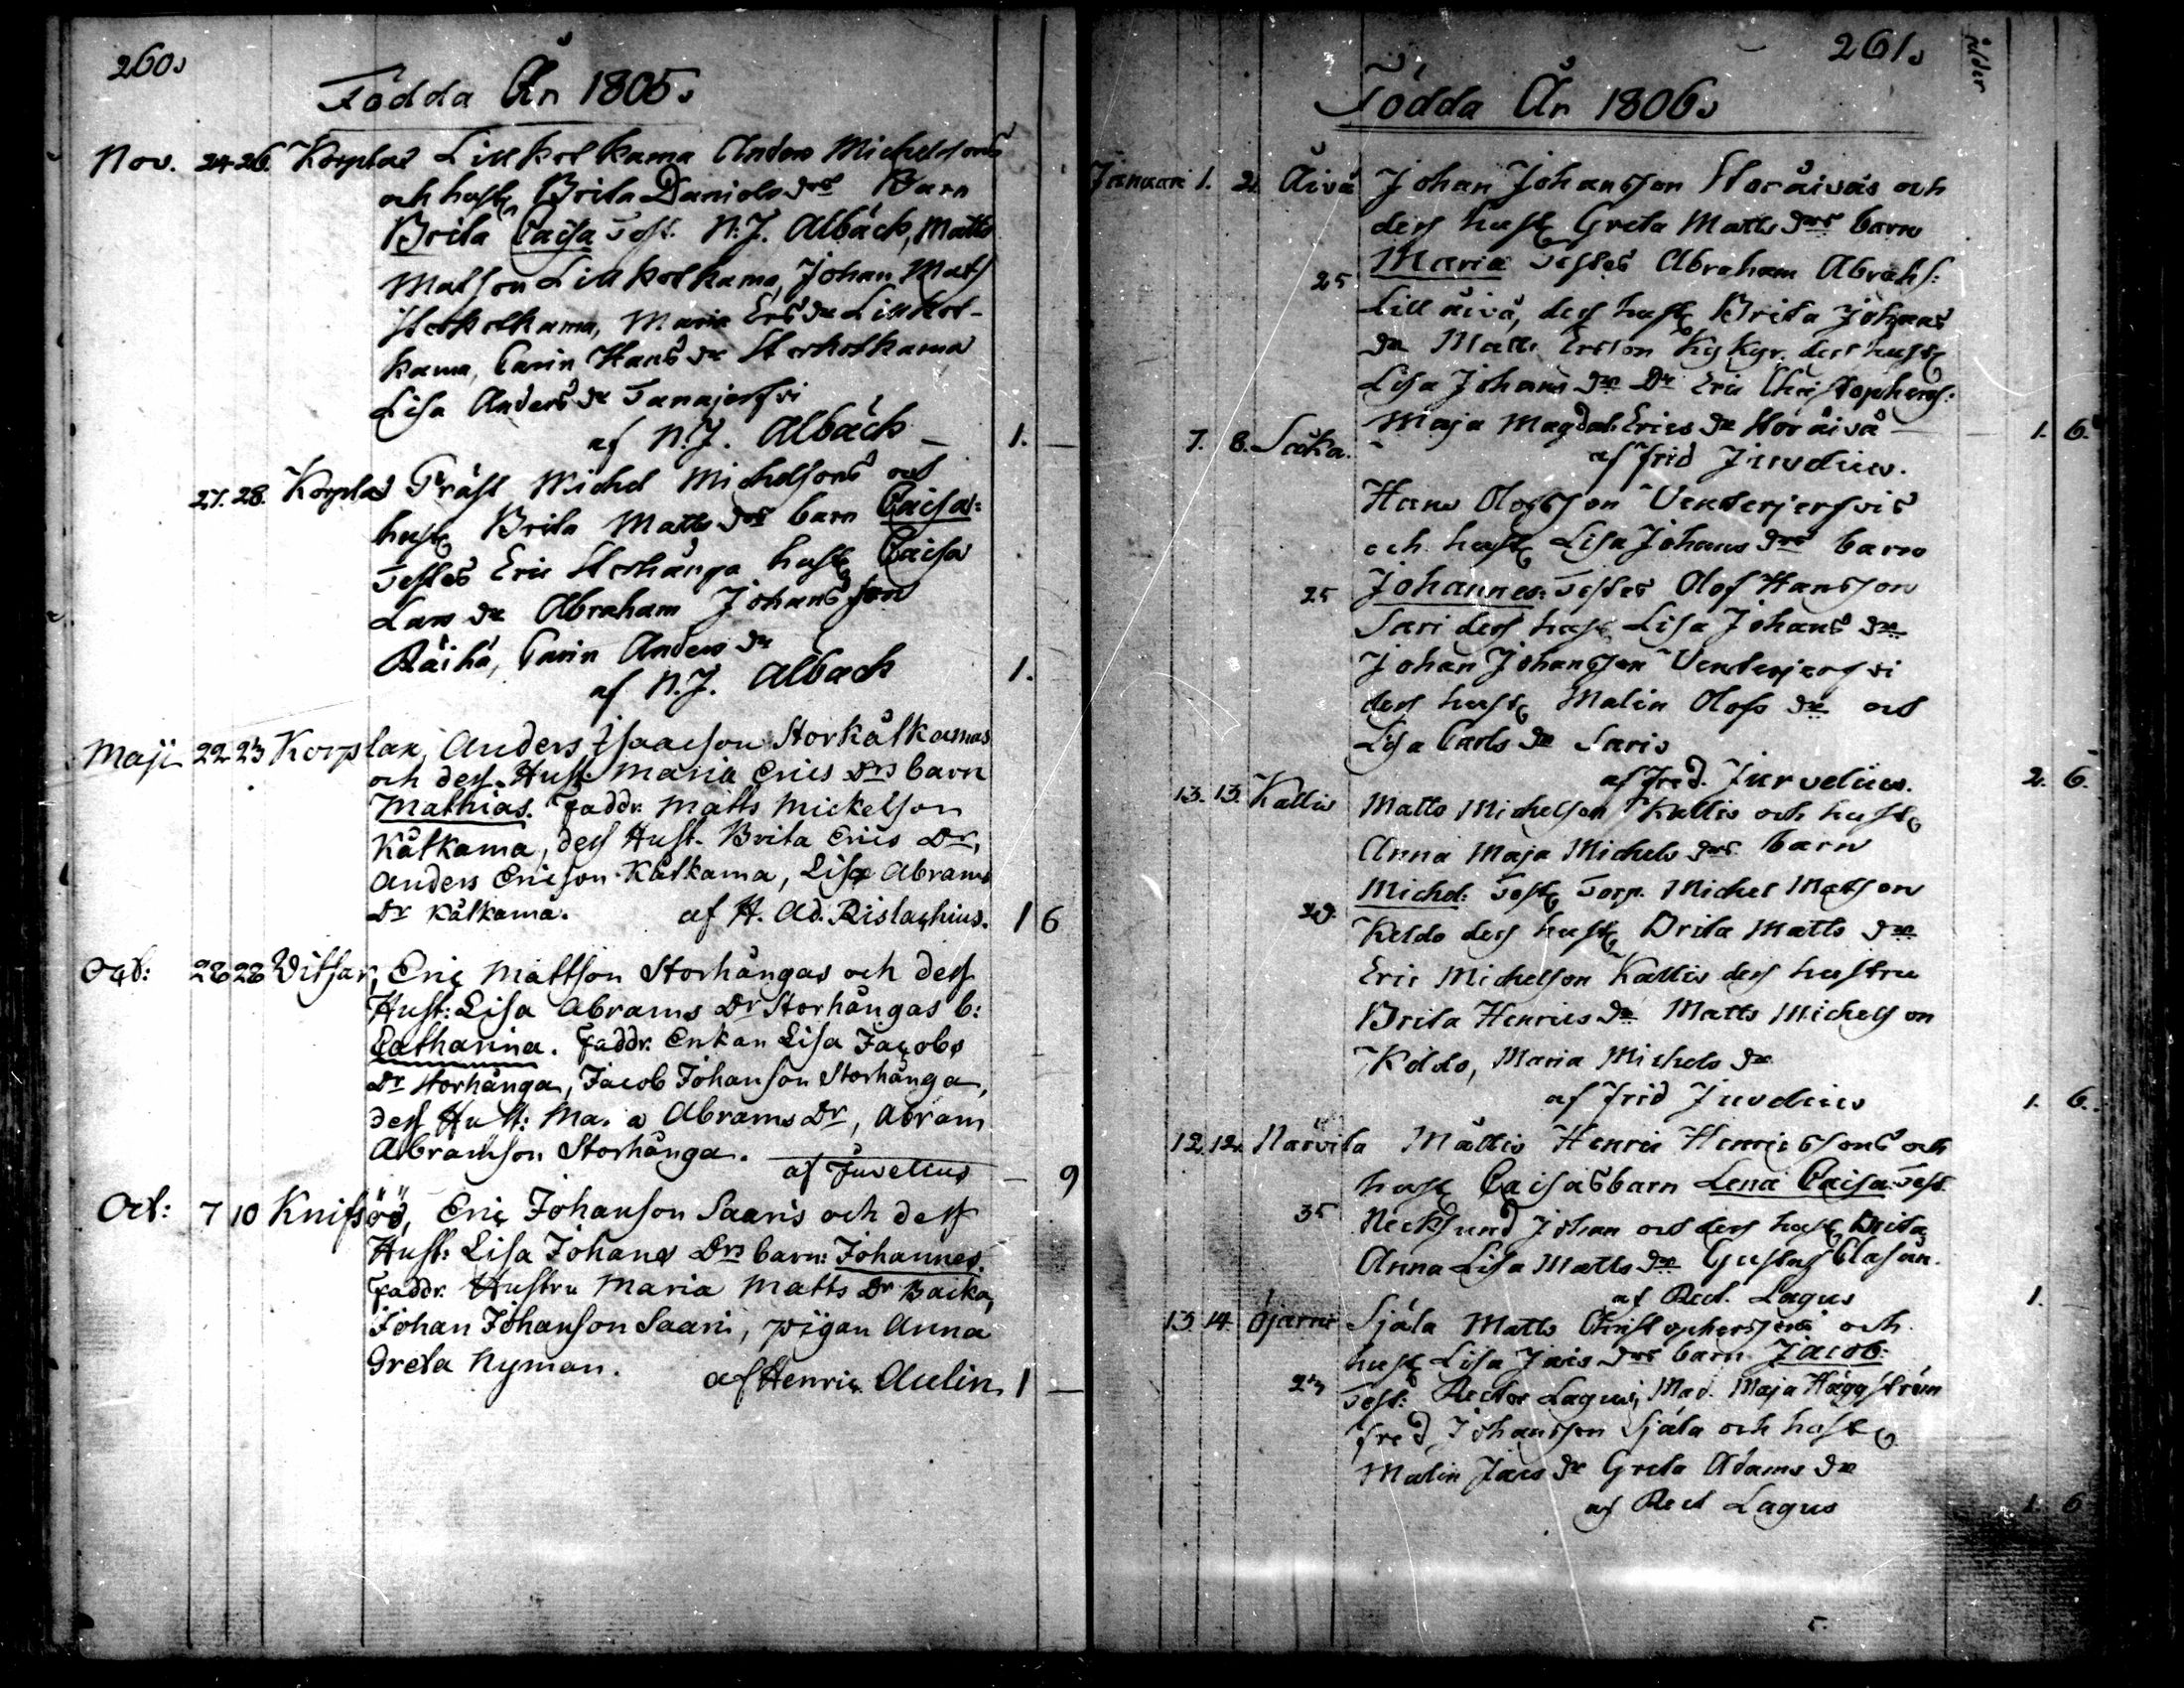 260.
Födda År 1805.
Nov. 24 26. Korplax Lillkolkama Anders Michelsons
och hust Brita Daniels drs Barn
Brita Caisa Test. N.J. Albäck, Matts
Matson Lillkolkama, Johan Mats
Storkolkama, Maria Ers dr Lillkol-
kama, Carin Hans dr Storkolkama
Lisa Anders dr Tanajerfvi
af N.J. Albäck — 1. —
27. 28. Korplax Träsk Michel Michelsons och
hust Brita Matts drs barn Caisa:
Testes Eric Storhänga hust Caisa
Lars dr Abraham Johansson
Räihä, Carin Anders dr
af N.J. Albäck 1.
Maji 22 23 Korplax, Anders Isaacson Storkålkamas
och dess Hust. Maria Erics Drs barn
Mathias. Faddr. Matts Mickelson
Kålkama, dess Hust. Brita Erics Dr,
Anders Ericson Kålkama, Lisa Abrams
Dr Kålkama. af H. Ad. Rislachius. 1 6
Oct: 28 28 Vitsar, Eric Mattson Storhängas och dess
Hust: Lisa Abrams Dr Storhängas b:
Catharina. Faddr. Enkan Lisa Jacobs
Dr Storhänga, Jacob Johanson Storhänga,
dess Hust: Ma. a Abrams Dr, Abram
Abramson Storhänga. af Juvelius — 9
Oct: 7 10 Knifsöö, Eric Johanson Saaris och dess
Hust: Lisa Johans Drs barn: Johannes.
Faddr. Hustru Maria Matts Dr Backa,
Johan Johanson Saari, pigan Anna
Greta Nyman. af Henric Aulin. 1 —
261.
ålder
Födda År 1806.
Januari 1. 2. Äivä Johan Johansson Storäiväs och
dess hust Greta Matts drs barn
25 Maria Testes Abraham Abrahs:
Lilläivä, dess hust Brita Johans
dr Matts Erson Kykyr. dess hust
Lisa Johans dr Dr Eric Christophers:
Maja Magdal. Erics dr Storäivä — 1. 6.
af Frid Juvelius.
7. 8. Saka. Hans Olofsson Venderjerfvis
och hust Lisa Johans drs barn
25 Johannes: Testes Olof Hansson
Sari dess hust Lisa Johans dr
Johan Johansson Venderjerfvi
dess hust Malin Olofs dr och
Lisa Carls dr Saris
af Fred. Juvelius. 2. 6.
13. 13. Kallis Matts Michelson Kallis och hust
Anna Maja Michels drs barn
29. Michel: Test Torp. Michel Matson
Keldo dess hust Brita Matts dr
Eric Michelson Kallis dess hustru
Brita Henrics dr Matts Michelson
Köldo, Maria Michels dr
af Frid Juvelius 1. 6.
12. 12. Narvila Mattis Henric Henricssons och
hust Caisas barn Lena Caisa: Test
35 Necksund Johan och dess hust Brita
Anna Lisa Matts dr Gustaf Clasén.
af Rect. Lagus 1. —
13. 14. Gjarvi Själa Matts Christophersons och
hust Lisa Jacs drs barn Jacob.
23 Test: Rector Lagus, Mad. Maja Häggström
Fred Johansson Själa och hust
Malin Jacs dr Greta Adams dr
af Rect Lagus 1. 6